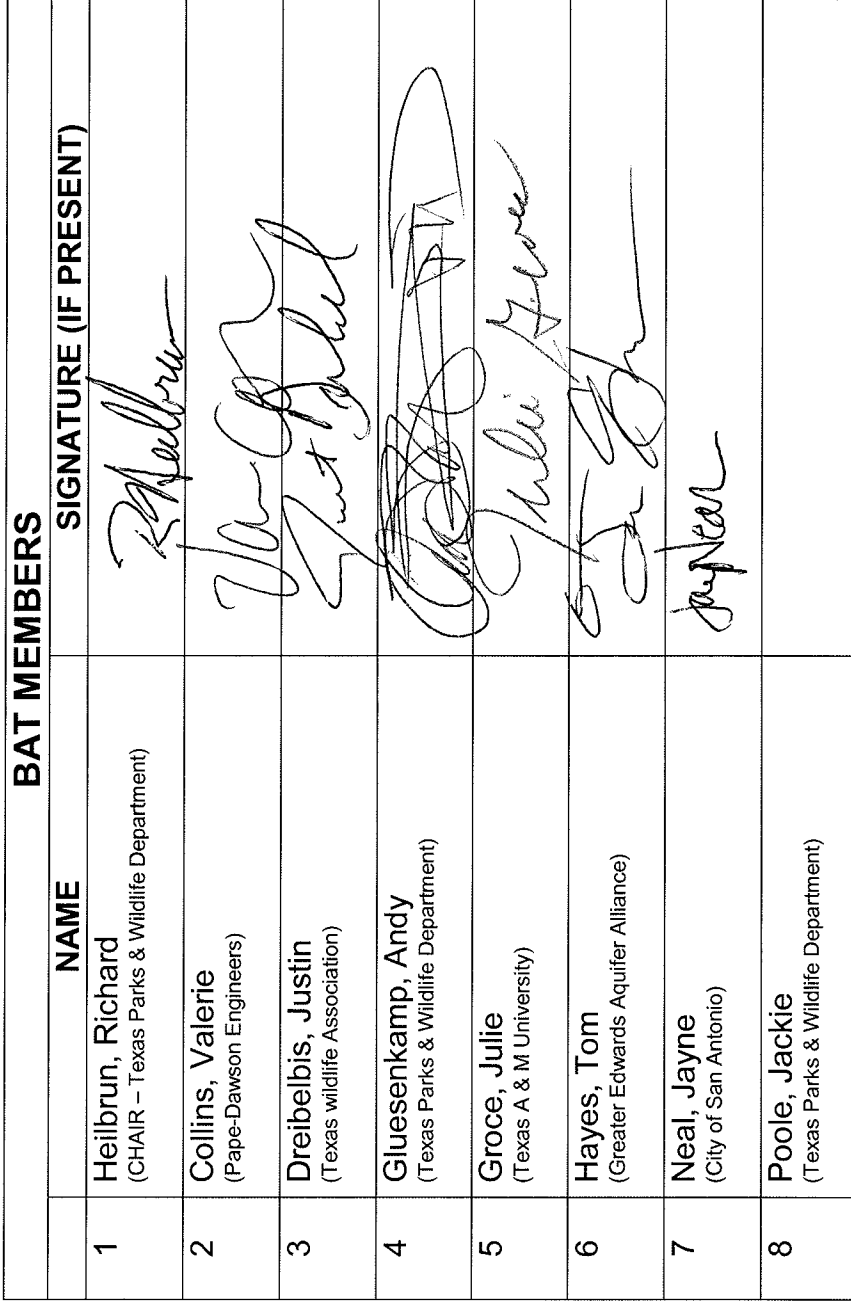 BAT MEMBERS
NAME SIGNATURE (IF PRESENT)
1 Heilbrun, Richard
(CHAIR – Texas Parks & Wildlife Department)
2 Collins, Valerie
(Pape-Dawson Engineers)
3 Dreibelbis, Justin
(Texas wildlife Association)
4 Gluesenkamp, Andy
(Texas Parks & Wildlife Department)
5 Groce, Julie
(Texas A & M University)
Julie Groce
6 Hayes, Tom
(Greater Edwards Aquifer Alliance)
7 Neal, Jayne
(City of San Antonio)
Jayne Neal
8 Poole, Jackie
(Texas Parks & Wildlife Department)